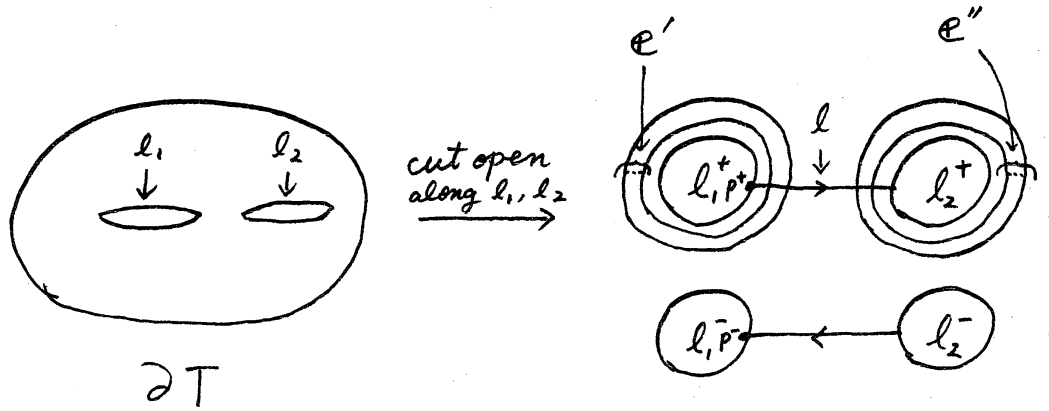 ℓ₁ ℓ₂
∂T
cut open
along ℓ₁, ℓ₂
e′ e″
ℓ
ℓ₁⁺ p⁺ ℓ₂⁺
ℓ₁⁻ p⁻ ℓ₂⁻